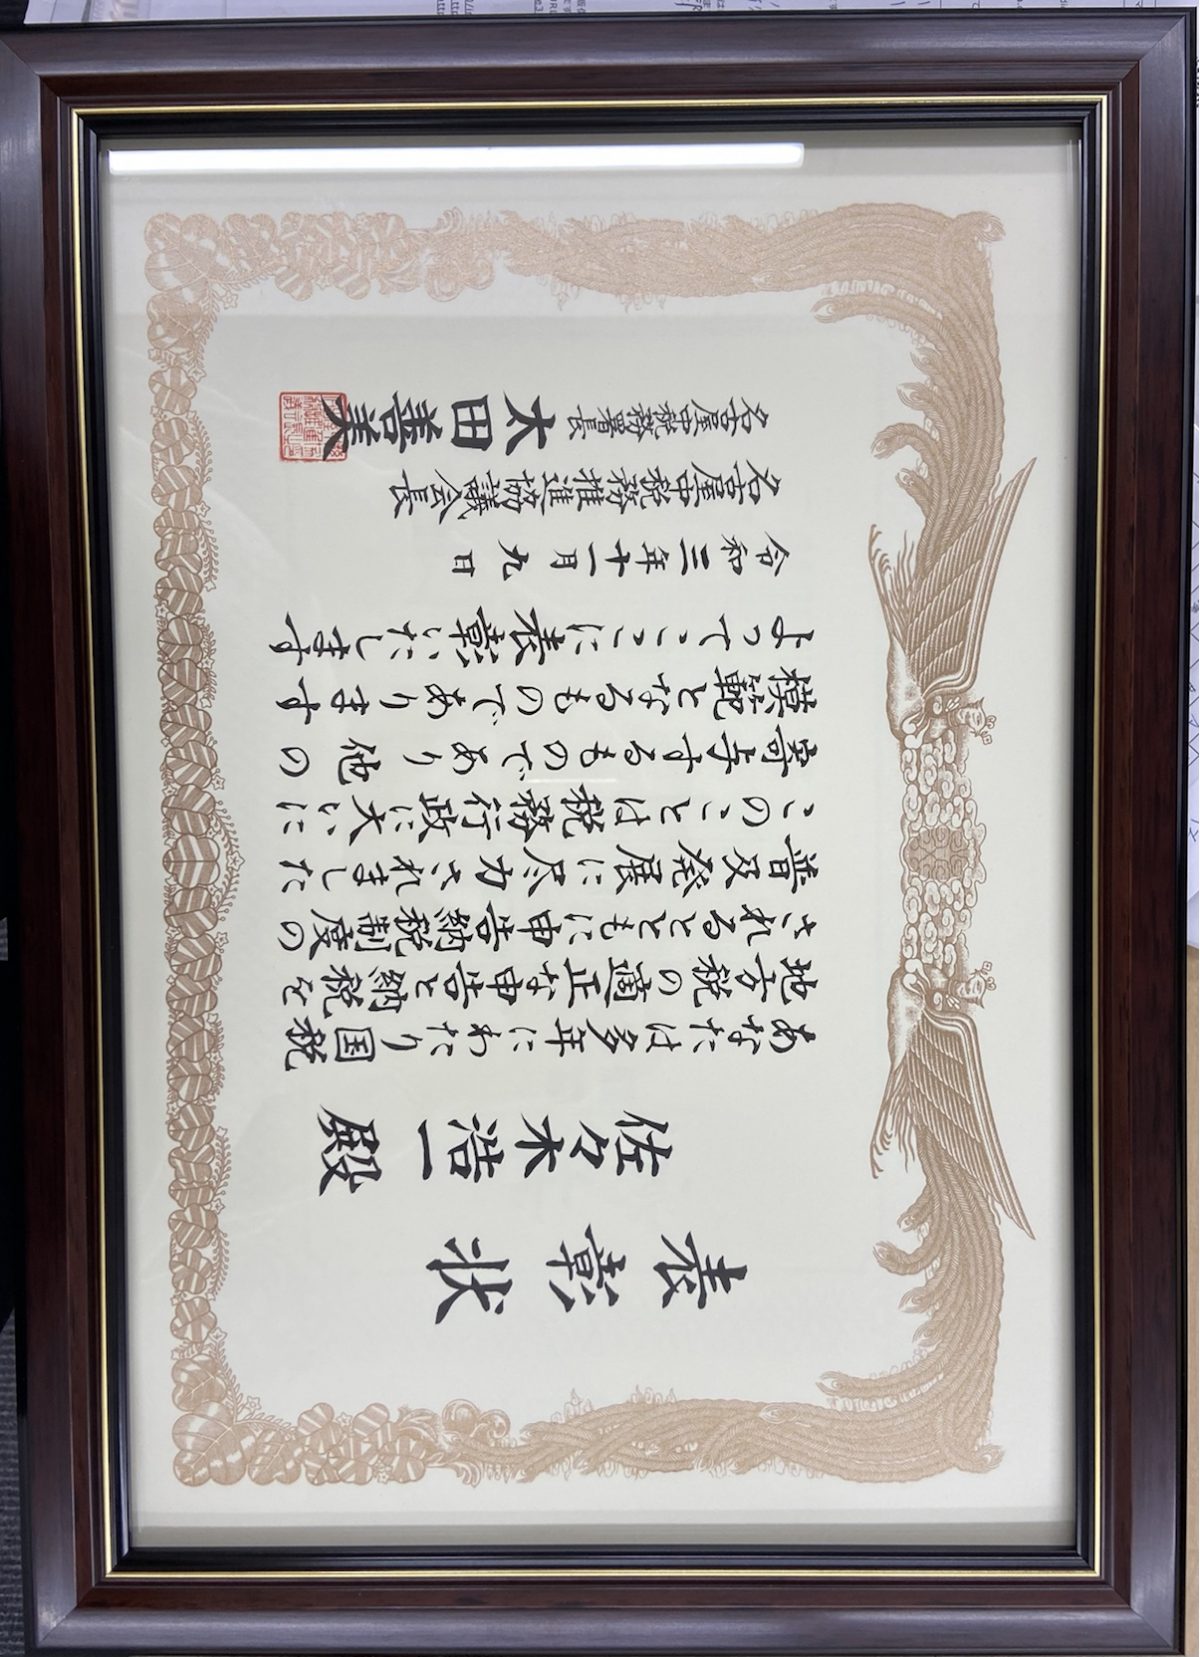 表彰状
佐々木浩一殿
あなたは多年にわたり国税
地方税の適正な申告と納税を
されるとともに申告納税制度の
普及発展に尽力されました
このことは税務行政に大いに
寄与するものであり他の
模範となるものであります
よってここに表彰いたします
令和三年十一月九日
名古屋中税務推進協議会長
名古屋中税務署長 太田善美